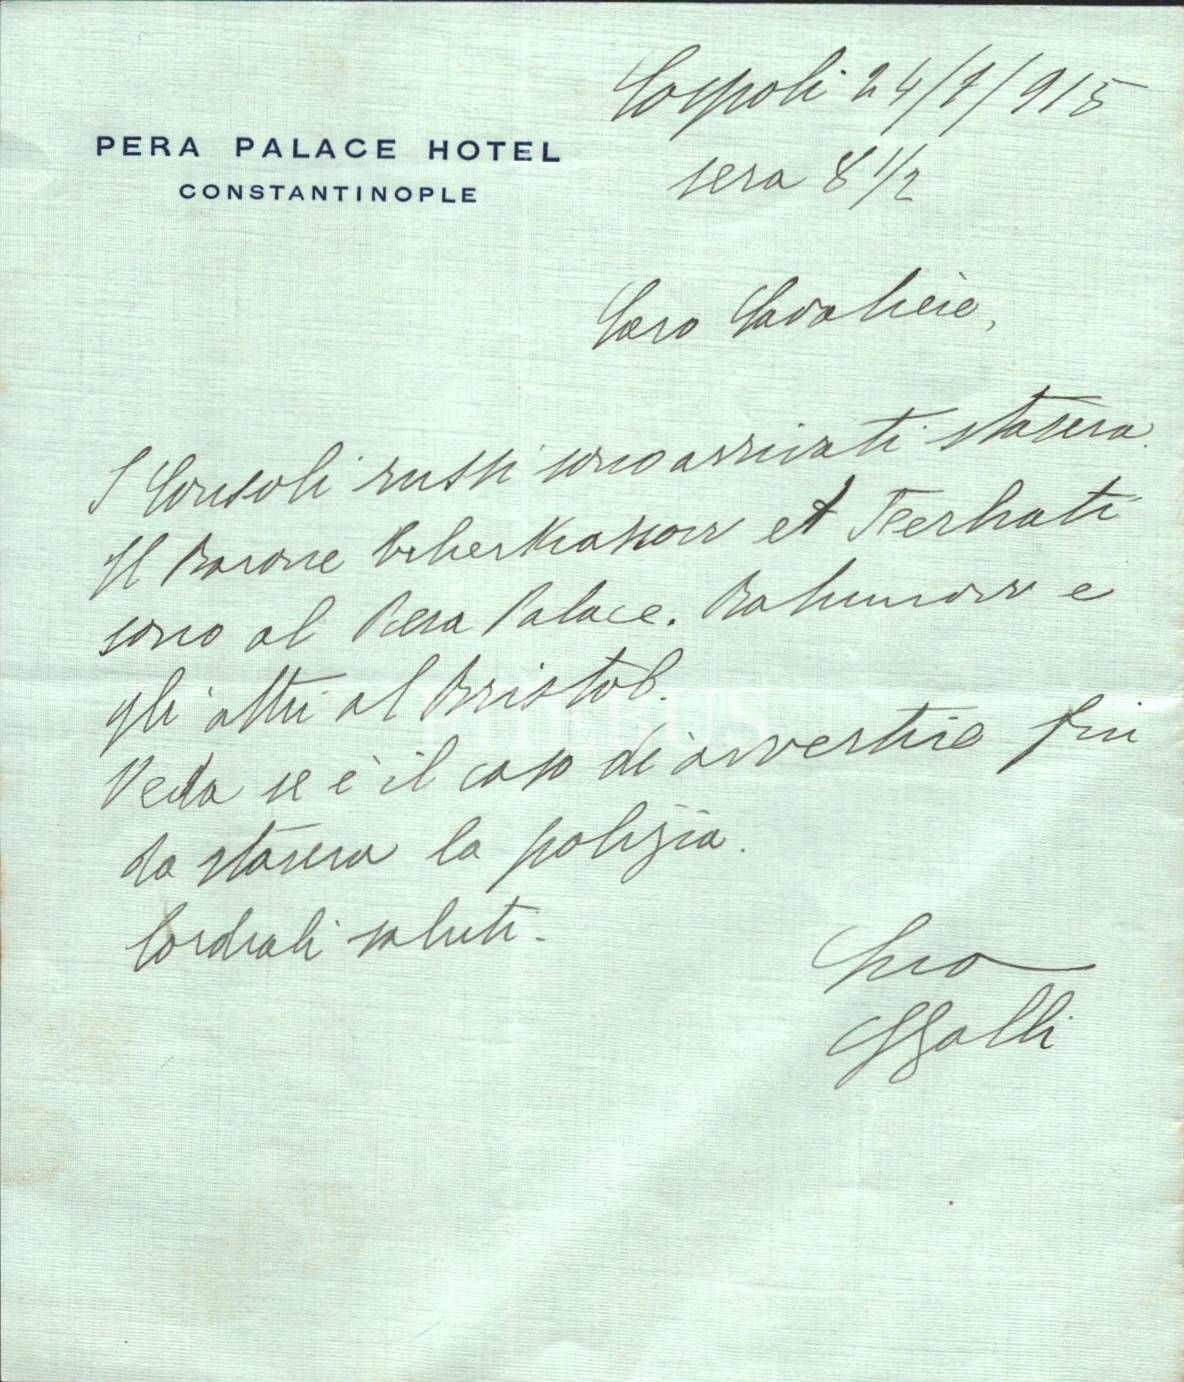 PERA PALACE HOTEL
CONSTANTINOPLE
Cospoli 24/7/915
sera 8 1/2
Caro Cavaliere,
I Consoli russi sono arrivati stasera.
Il Barone et
sono al Pera Palace. e
gli altri al Bristol.
Veda se è il caso di avvertire fin
da stasera la polizia.
Cordiali saluti.
Suo
GGalli